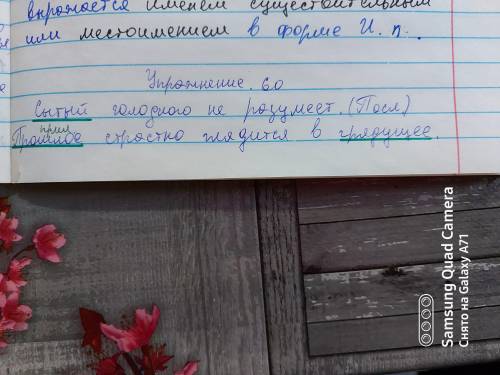 выражается именем существительным
или местоимением в форме И. п..
Упражнение. 60
Сытый голодного не разумеет. (Посл)
прил
Прошлое страстно глядится в грядущее.
Samsung Quad Camera
Снято на Galaxy A71